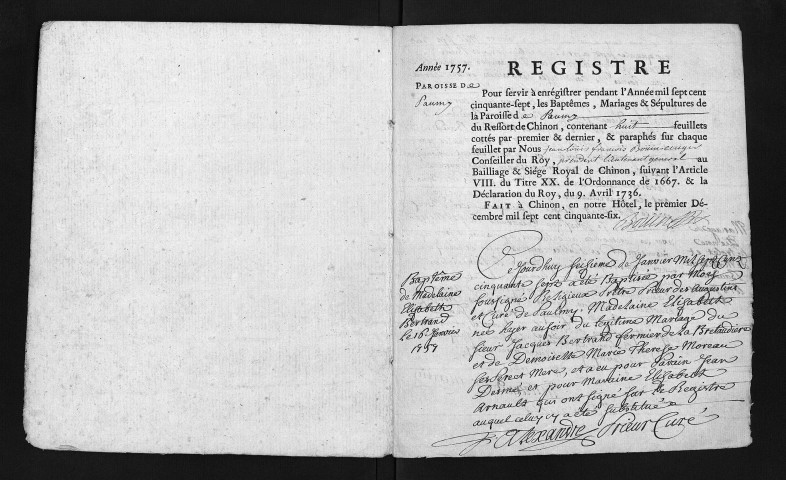 Année 1757.
PAROISSE DE
Paumy
REGISTRE
Pour servir à enrégistrer pendant l'Année mil sept cent
cinquante-sept, les Baptêmes, Mariages & Sépultures de
la Paroisse de Paumy
du Ressort de Chinon, contenant huit feuillets
cottés par premier & dernier, & paraphés sur chaque
feuillet par Nous Jean Louis François
Conseiller du Roy, président lieutenant general au
Bailliage & Siége Royal de Chinon, suivant l'Article
VIII. du Titre XX. de l'Ordonnance de 1667. & la
Déclaration du Roy, du 9. Avril 1736.
FAIT à Chinon, en notre Hôtel, le premier Dé-
cembre mil sept cent cinquante-six.
Baptême
de Madelaine
Elizabeth
Bertrand
Le 16e Janvier
1757
Cejourdhuy seisieme de Janvier Mil sept Cens
cinquante sept a été Baptisée par Moy
soussigné Religieux Prêtre Prieur des Augustins
et Curé de Paulmy, Madelaine Elizabeth
née hyer au soir du legitime Mariage du
sieur Jacques Bertrand fermier de la Bretaudiere
et de Demoiselle Marie Therese Moreau
ses Pere et Mere, et a eu pour Parain Jean
et pour Maraine Elizabeth
Arnault qui ont signé sur le Registre
auquel celuy cy a été substitué
f. Alexandre Prieur Curé